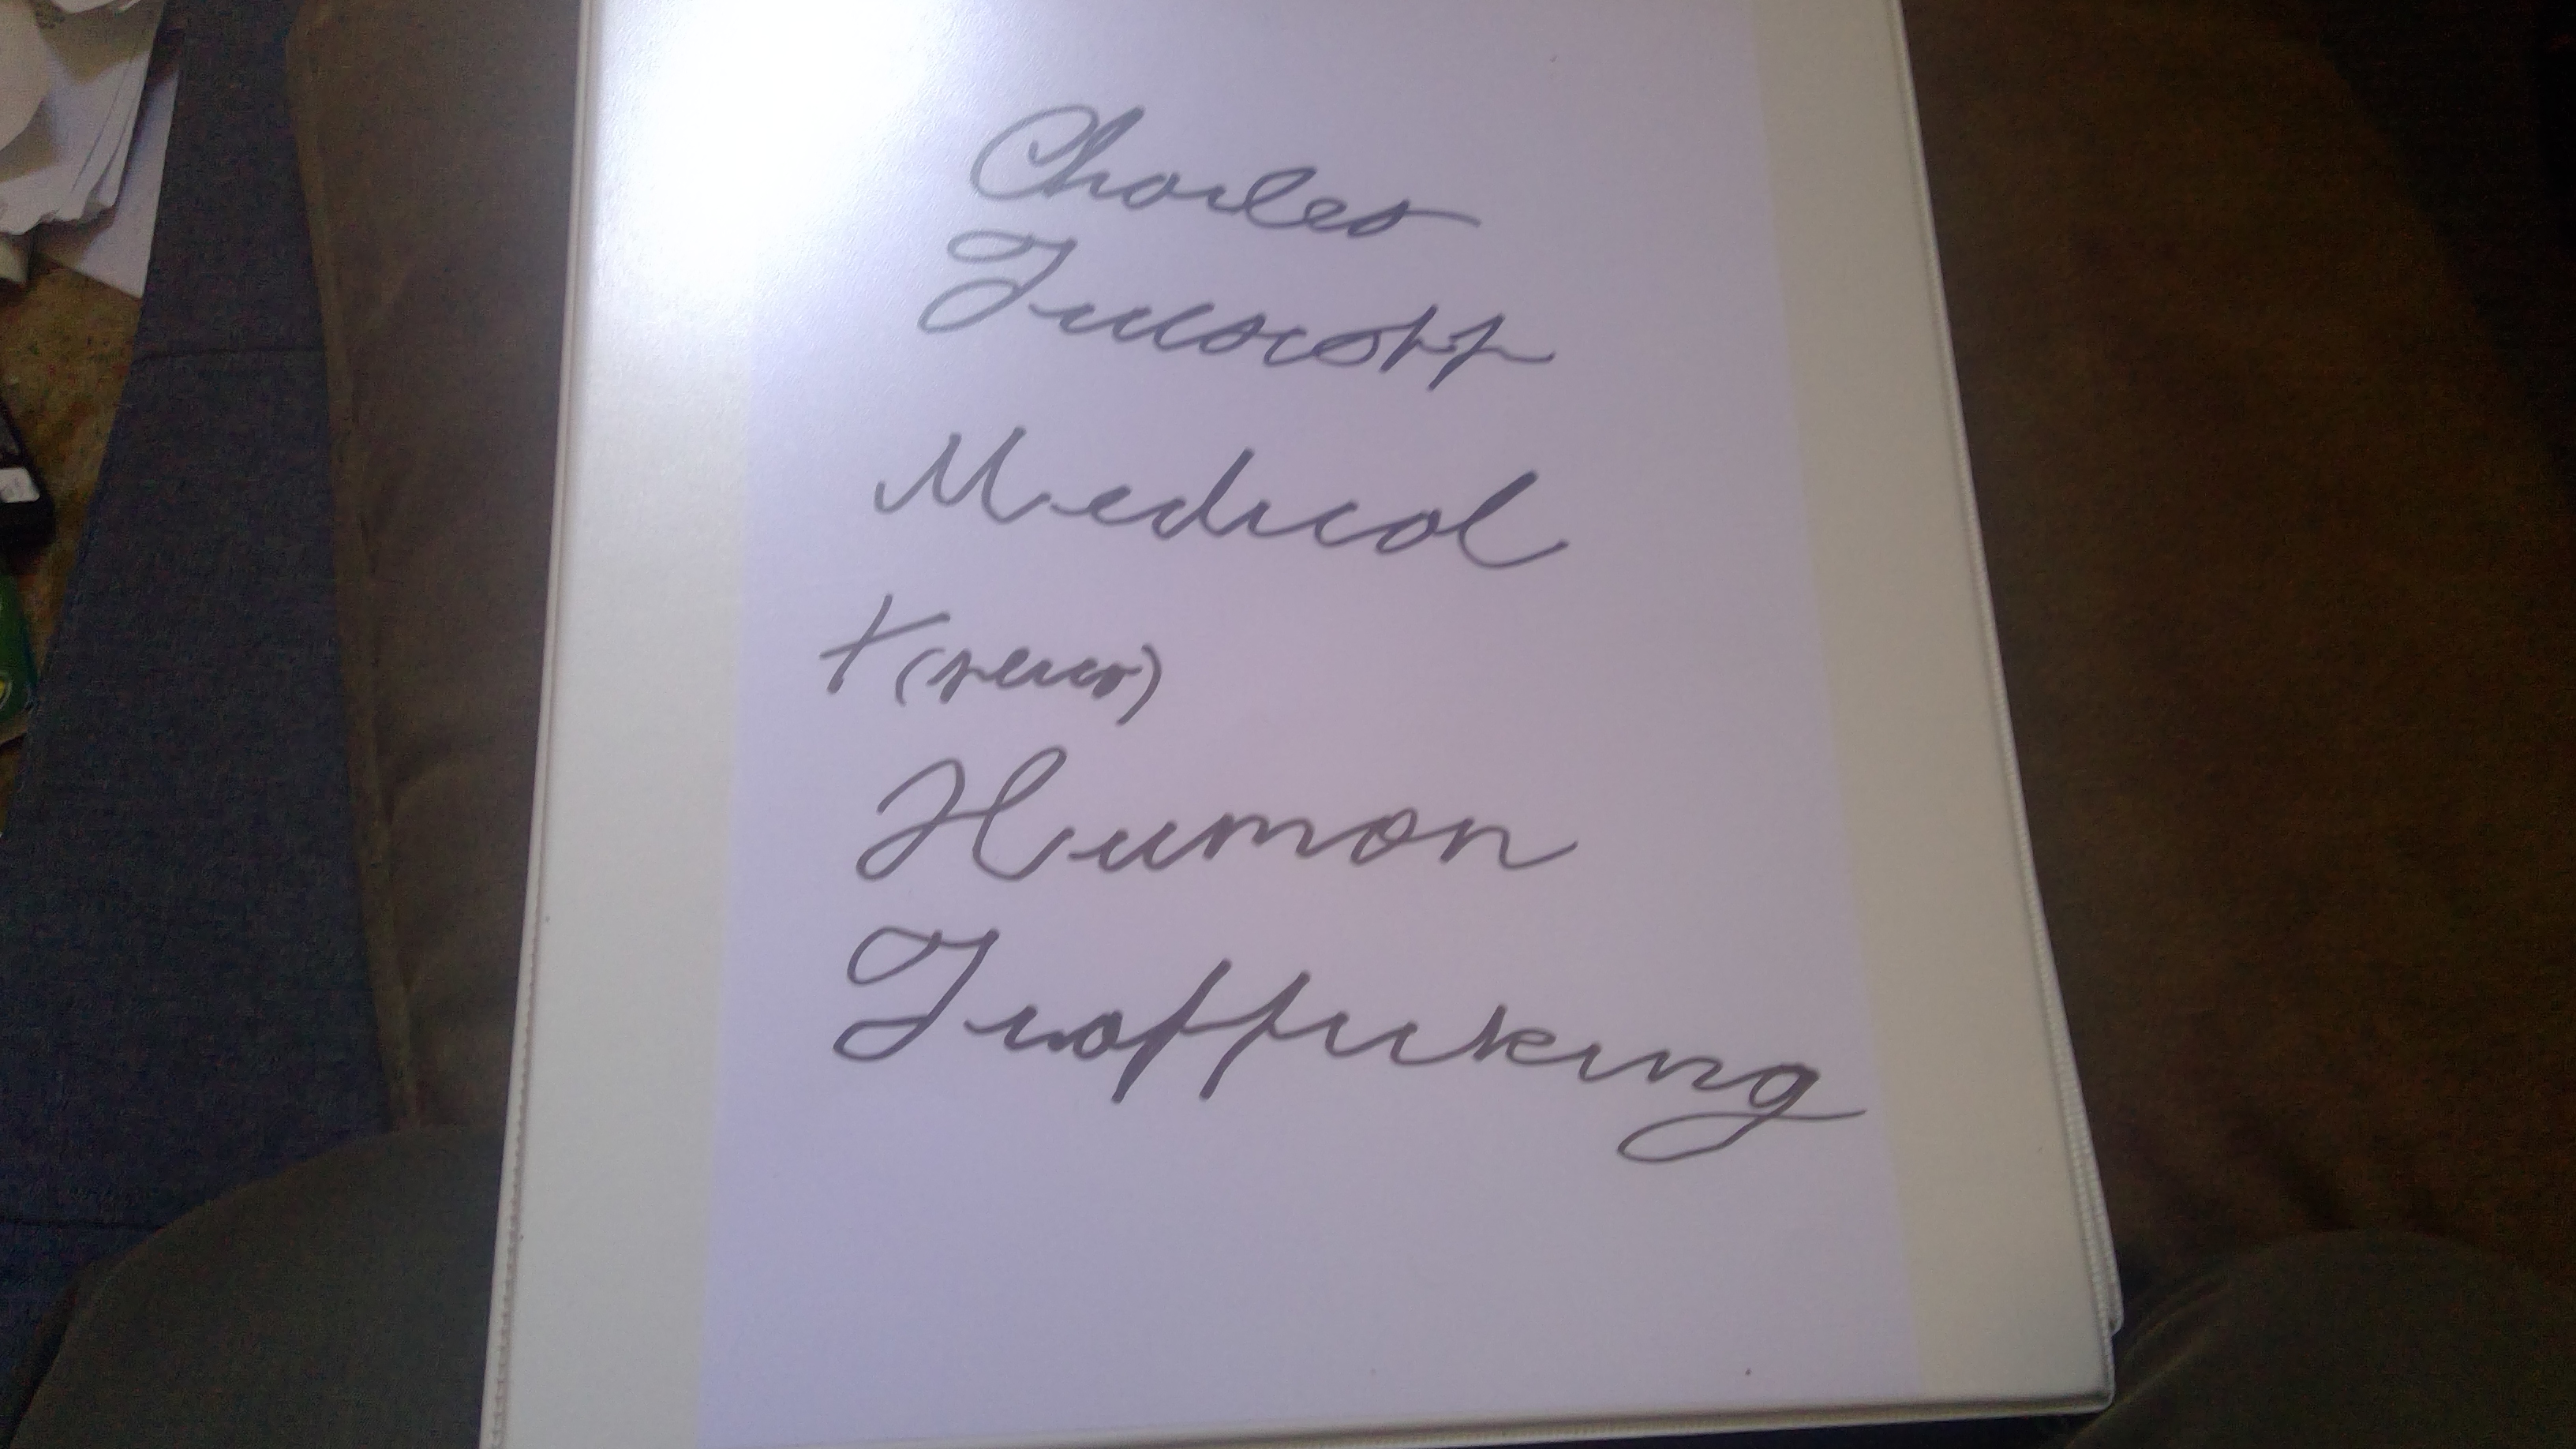 Charles
Truscott
Medical
+(news)
Human
Trafficking